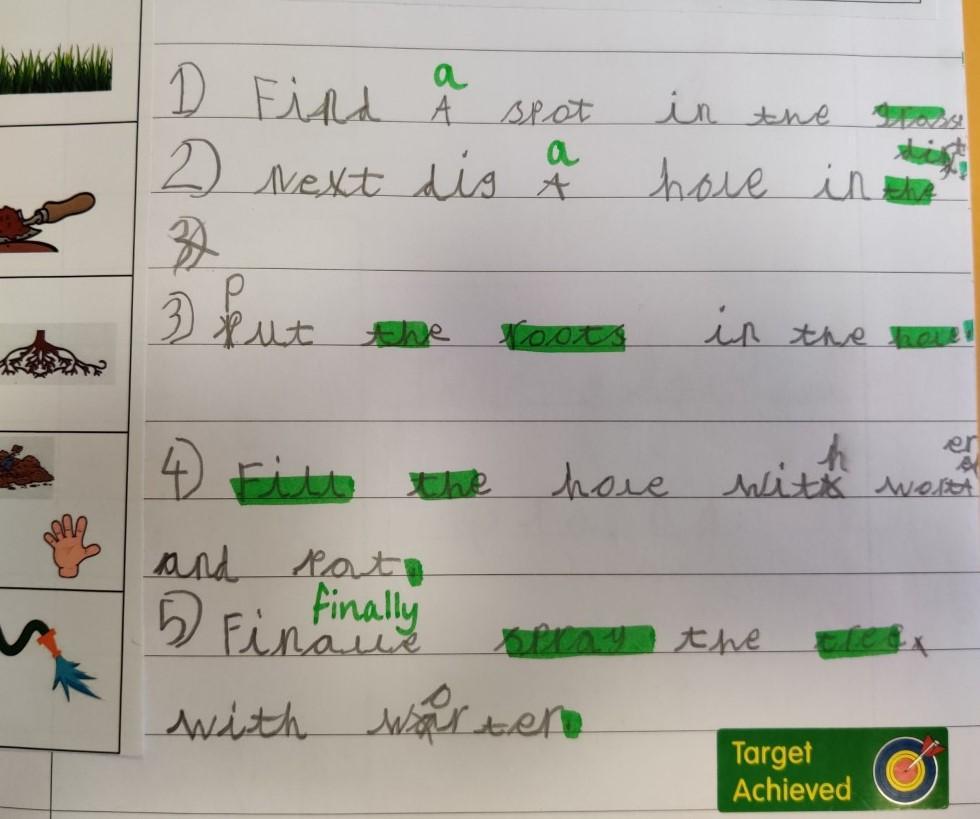 a
1) Find A spot in the grass
a dirt
2) Next dig A hole in the
3)
p
3) Put the roots in the hole.
h er
4) Fill the hole with wort
and pat.
finally
5) Finalle spray the tree
o
with warter.
Target
Achieved